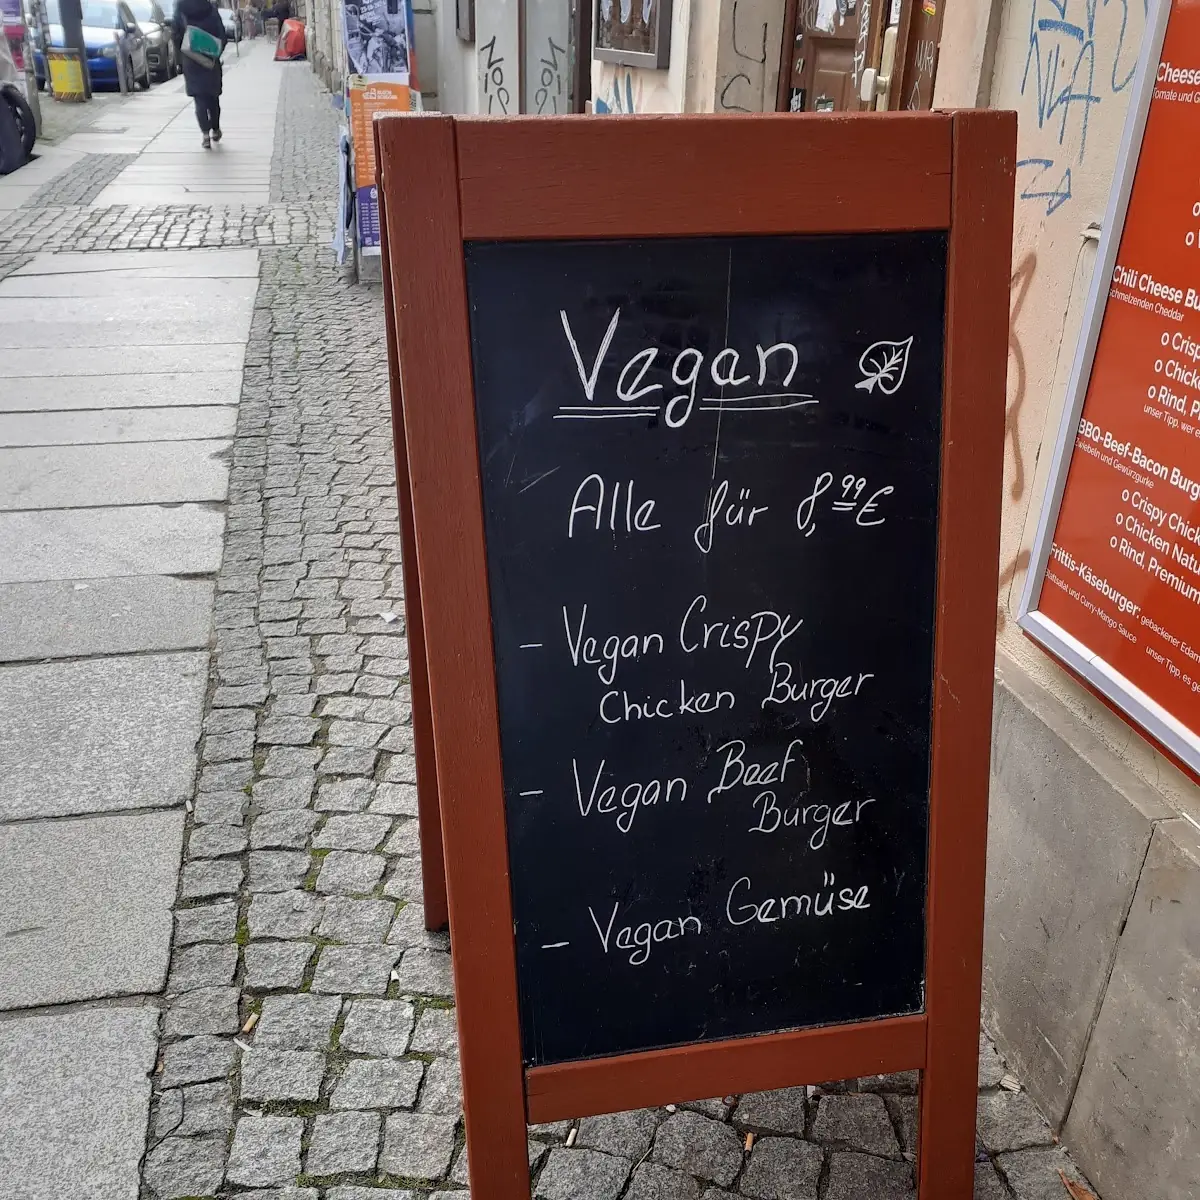 Vegan
Alle für 8,99€
- Vegan Crispy
Chicken Burger
- Vegan Beef
Burger
- Vegan Gemüse
Cheese
Tomate und G
Chili Cheese Bu
schmelzenden Cheddar
o Crisp
o Chick
o Rind, P
unser Tipp, wer e
BBQ-Beef-Bacon Burg
Zwiebeln und Gewürzgurke
o Crispy Chick
o Chicken Natu
o Rind, Premium
Frittis-Käseburger; gebackener Edam
Blattsalat und Curry-Mango Sauce
unser Tipp, es ge